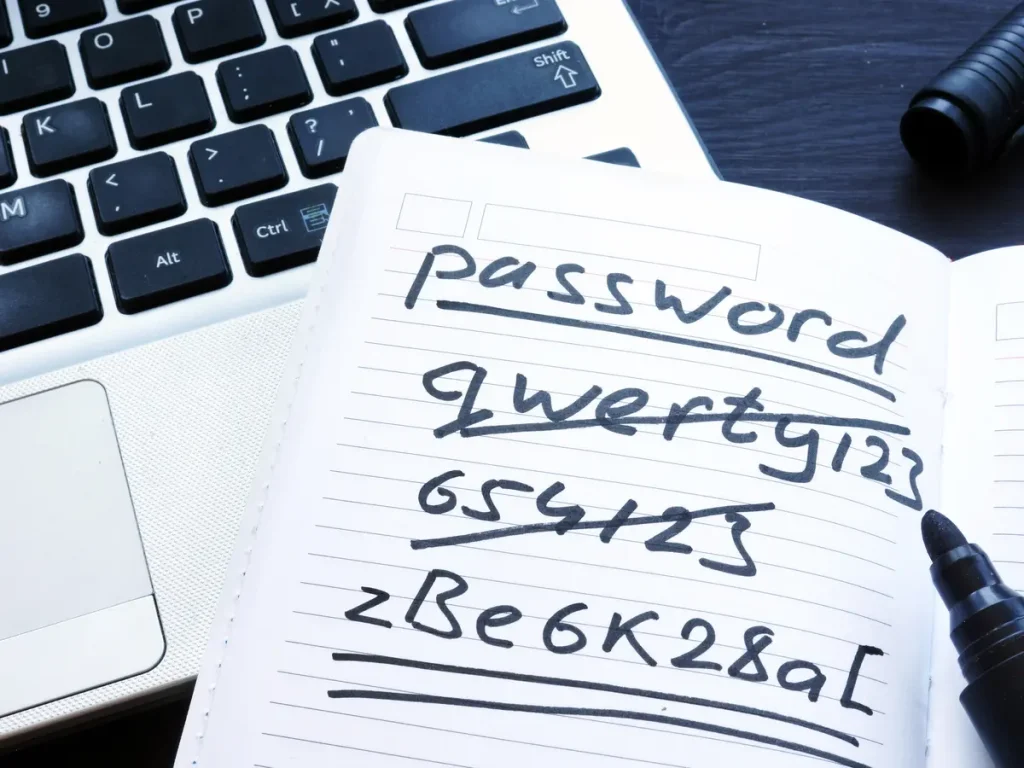 9
P
[
Enter
I
O
:
;
"
'
Shift
K
L
?
/
M
<
,
>
.
Ctrl
Alt
password
qwerty123
654123
zBe6K28a[